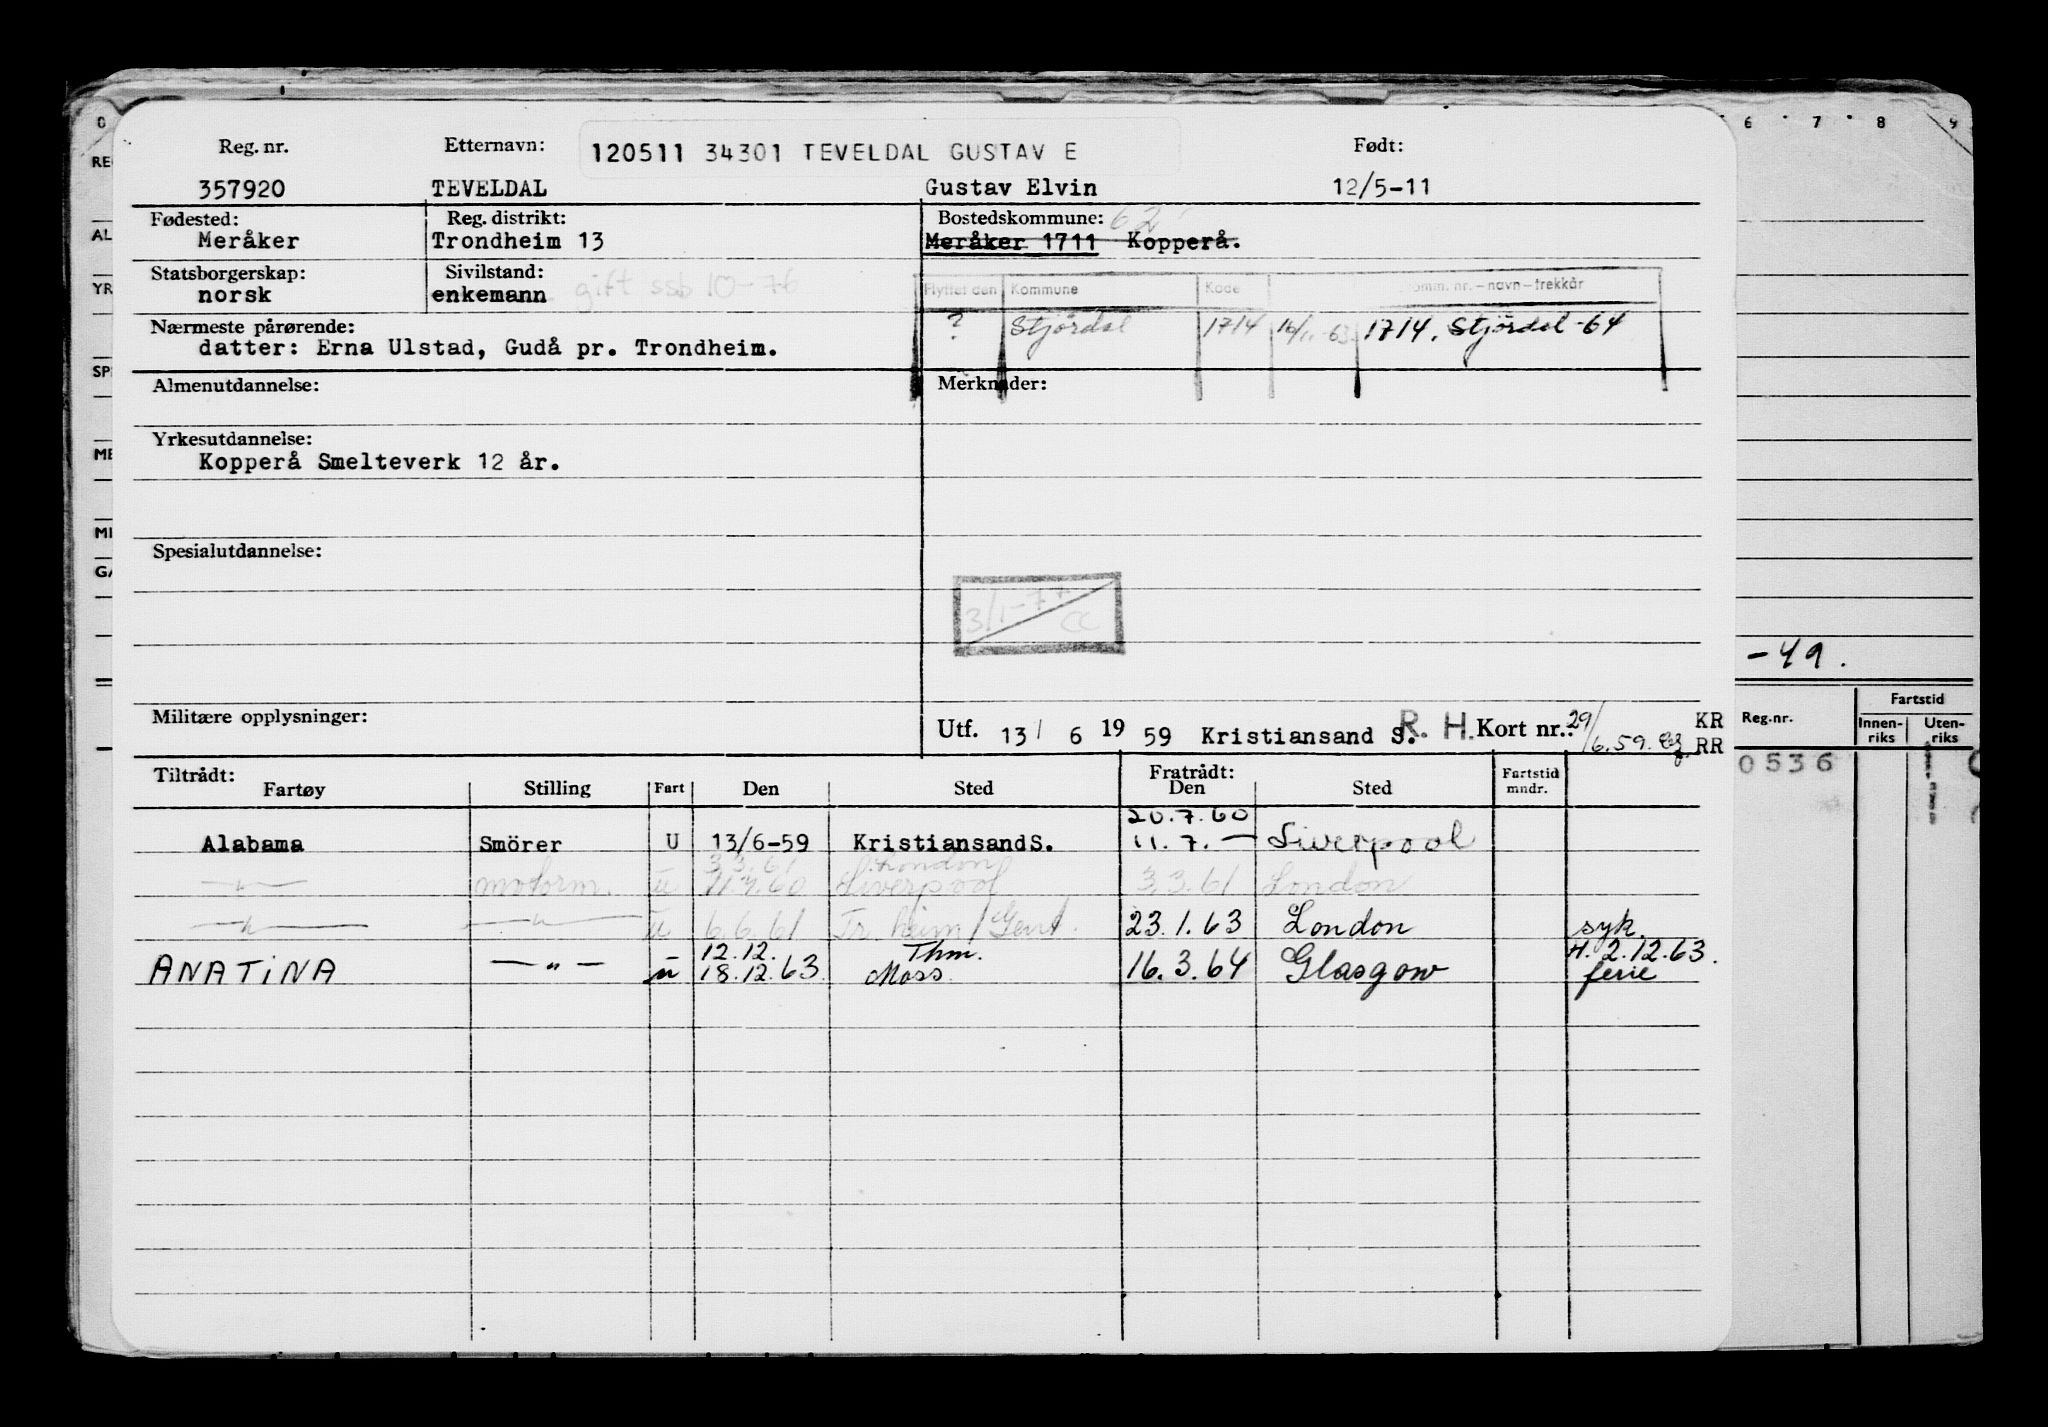 Reg. nr. Etternavn: 120511 34301 TEVELDAL GUSTAV E Født:
357920 TEVELDAL Gustav Elvin 12/5-11
Fødested: Reg. distrikt: Bostedskommune: 62
Meråker Trondheim 13 Meråker 1711 Kopperå.
Statsborgerskap: Sivilstand:
norsk enkemann gift ssb 10-76
Flyttet den Kommune Kode omm. nr. – navn – trekkår
? Stjørdal 1714 16/1-63 1714. Stjørdal -64
Nærmeste pårørende:
datter: Erna Ulstad, Gudå pr. Trondheim.
Almenutdannelse: Merknader:
Yrkesutdannelse:
Kopperå Smelteverk 12 år.
Spesialutdannelse:
3/1-77 CC
Militære opplysninger:
Utf. 13/ 6 19 59 Kristiansand S. R. H. Kort nr.: 29/6.59. KR RR
Tiltrådt: Fratrådt: Fartstid
Fartøy Stilling Fart Den Sted Den Sted mndr.
20.7.60
Alabama Smörer U 13/6-59 KristiansandS. 11.7. — Liverpool
3.3.61 London
—"— motorm. u 11.7.60 Liverpool 3.3.61 London
—"— —"— u 6.6.61 Tr.heim/Gent. 23.1.63 London syk.
12.12. Thm. H. 2.12.63.
ANATINA —"— u 18.12.63. Moss. 16.3.64 Glasgow ferie
O
RE
AL
YR
SP
ME
MI
GA
6 7 8 9
-49.
Fartstid
Reg.nr. Innen-riks Uten-riks
0536 1